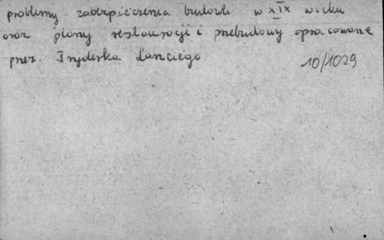 problemy zabezpieczenia budowli w XIX wieku
oraz plany restauracji i przebudowy opracowane
przez Fryderyka Lanciego
10/1029